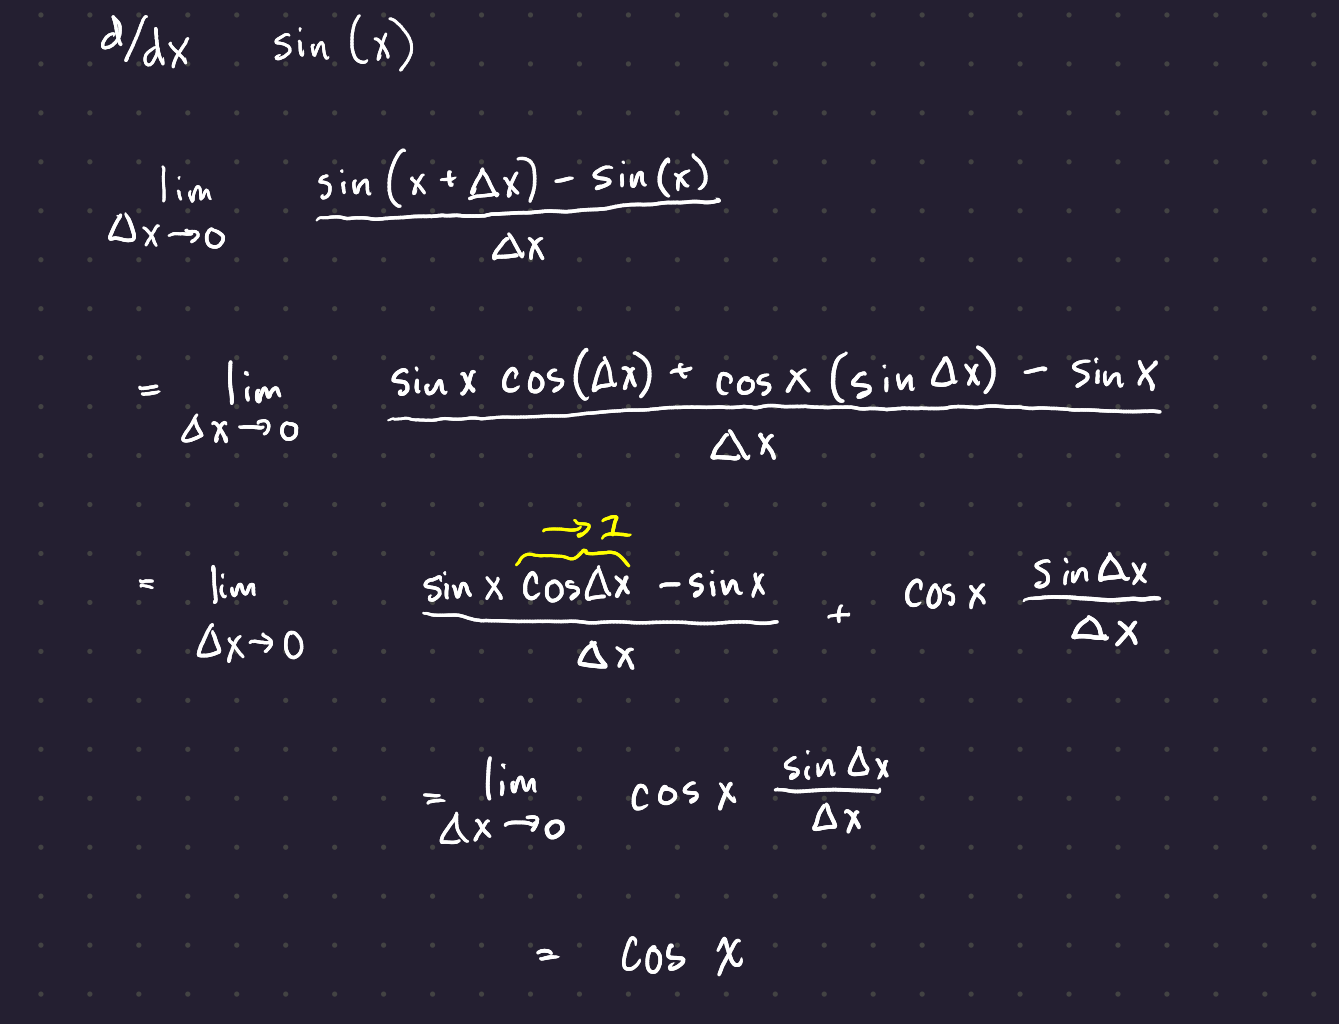 d/dx sin (x)
lim Δx→0 (sin (x + Δx) - sin (x)) / Δx
= lim Δx→0 (sin x cos(Δx) + cos x (sin Δx) - sin x) / Δx
→ 1
= lim Δx→0 (sin x cosΔx - sin x) / Δx + cos x (sin Δx) / Δx
= lim Δx→0 cos x (sin Δx) / Δx
= cos x